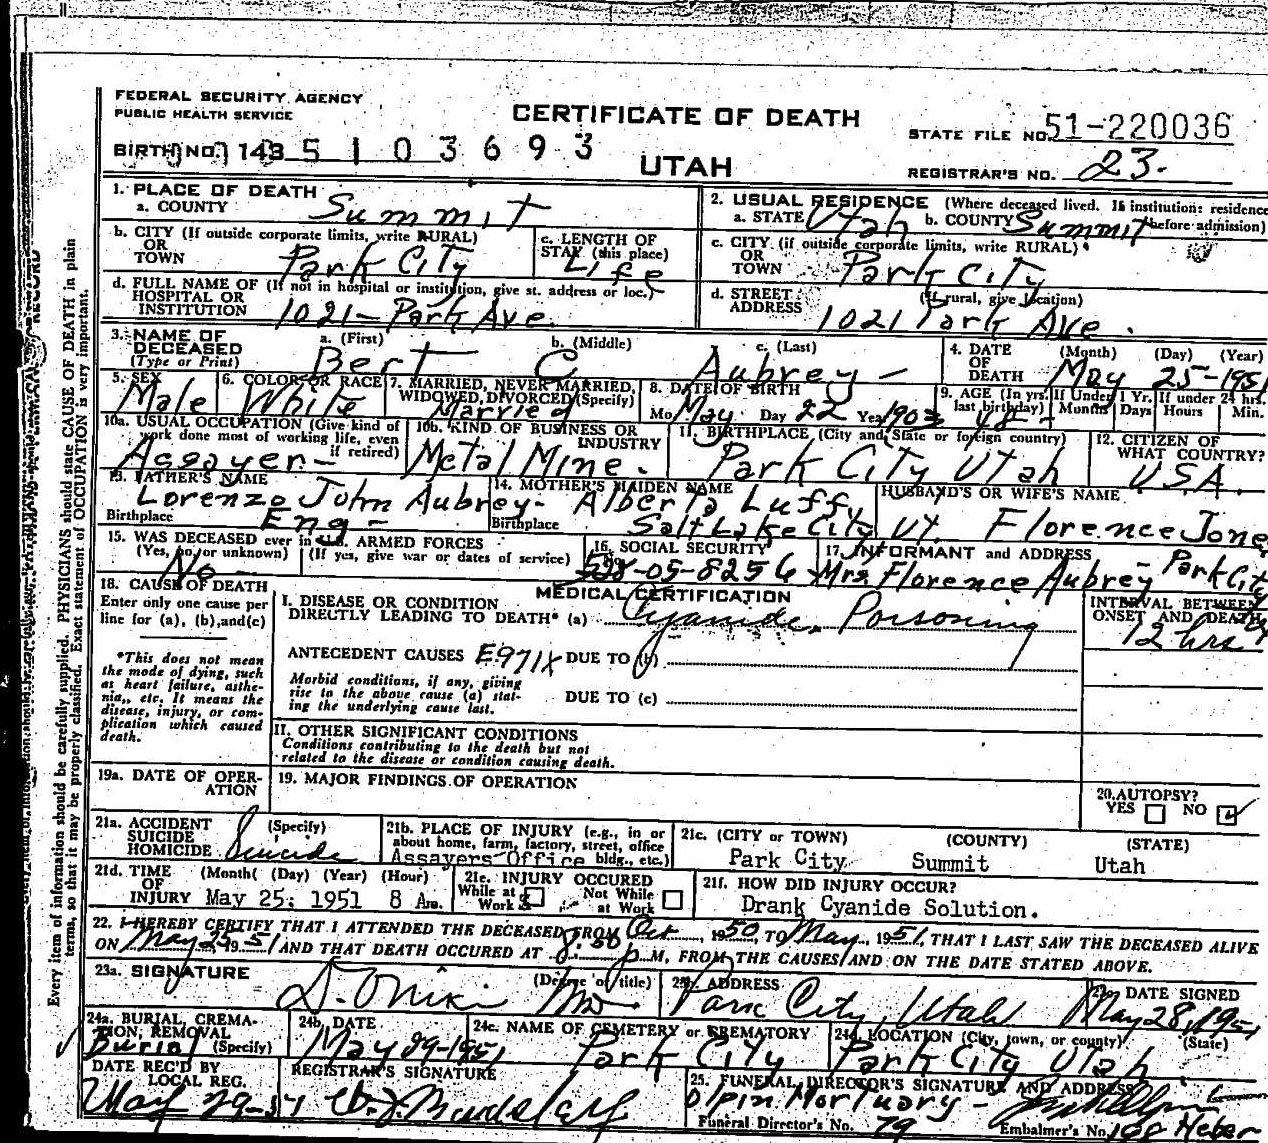 FEDERAL SECURITY AGENCY
PUBLIC HEALTH SERVICE
CERTIFICATE OF DEATH
STATE FILE NO. 51-220036
BIRTH NO. 143 5 1 0 3 6 9 3
UTAH
REGISTRAR'S NO. 23.
1. PLACE OF DEATH
a. COUNTY Summit
2. USUAL RESIDENCE (Where deceased lived. If institution: residence before admission)
a. STATE Utah b. COUNTY Summit
b. CITY (If outside corporate limits, write RURAL) OR TOWN Park City
c. LENGTH OF STAY (this place) Life
c. CITY (if outside corporate limits, write RURAL) OR TOWN Park City
d. FULL NAME OF (If not in hospital or institution, give st. address or loc.) HOSPITAL OR INSTITUTION 1021-Park Ave.
d. STREET ADDRESS (If rural, give location) 1021 Park Ave.
3. NAME OF DECEASED (Type or Print)
a. (First) Bert b. (Middle) C c. (Last) Aubrey-
4. DATE OF DEATH (Month) (Day) (Year) May 25-1951
5. SEX Male
6. COLOR OR RACE White
7. MARRIED, NEVER MARRIED, WIDOWED, DIVORCED (Specify) Married
8. DATE OF BIRTH Mo May Day 22 Year 1903
9. AGE (In yrs. last birthday) 48 If Under 1 Yr. Months Days If under 24 hrs. Hours Min.
10a. USUAL OCCUPATION (Give kind of work done most of working life, even if retired) Assayer-
10b. KIND OF BUSINESS OR INDUSTRY Metal Mine.
11. BIRTHPLACE (City and State or foreign country) Park City Utah
12. CITIZEN OF WHAT COUNTRY? U.S.A.
13. FATHER'S NAME Lorenzo John Aubrey-
Birthplace Eng-
14. MOTHER'S MAIDEN NAME Alberta Luff
Birthplace Salt Lake City Ut.
HUSBAND'S OR WIFE'S NAME Florence Jone
15. WAS DECEASED ever in U.S. ARMED FORCES
(Yes, no, or unknown) (If yes, give war or dates of service) No
16. SOCIAL SECURITY 528-05-8256
17. INFORMANT and ADDRESS Mrs Florence Aubrey Park City
18. CAUSE OF DEATH
Enter only one cause per line for (a), (b), and (c)
MEDICAL CERTIFICATION
I. DISEASE OR CONDITION DIRECTLY LEADING TO DEATH* (a) Cyanide Poisoning
INTERVAL BETWEEN ONSET AND DEATH 12 hrs
*This does not mean the mode of dying, such as heart failure, asthenia,, etc. It means the disease, injury, or complication which caused death.
ANTECEDENT CAUSES E971X DUE TO (b)
Morbid conditions, if any, giving rise to the above cause (a) stating the underlying cause last.
DUE TO (c)
II. OTHER SIGNIFICANT CONDITIONS
Conditions contributing to the death but not related to the disease or condition causing death.
19a. DATE OF OPERATION
19. MAJOR FINDINGS OF OPERATION
20. AUTOPSY? YES NO
21a. ACCIDENT SUICIDE HOMICIDE (Specify) Suicide
21b. PLACE OF INJURY (e.g., in or about home, farm, factory, street, office bldg., etc.) Assayers Office
21c. (CITY or TOWN) (COUNTY) (STATE)
Park City Summit Utah
21d. TIME OF INJURY (Month) (Day) (Year) (Hour) May 25, 1951 8 Am.
21e. INJURY OCCURED While at Work Not While at Work
21f. HOW DID INJURY OCCUR?
Drank Cyanide Solution.
22. I HEREBY CERTIFY THAT I ATTENDED THE DECEASED FROM Oct, 1950, TO May, 1951, THAT I LAST SAW THE DECEASED ALIVE
ON May 1951 AND THAT DEATH OCCURED AT 8:50 P M, FROM THE CAUSES AND ON THE DATE STATED ABOVE.
23a. SIGNATURE (Degree or title) MD
23b. ADDRESS Park City, Utah
23c. DATE SIGNED May 28, 1951
24a. BURIAL, CREMATION, REMOVAL (Specify) Burial
24b. DATE May 29-1951
24c. NAME OF CEMETERY or CREMATORY Park City
24d. LOCATION (City, town, or county) (State) Park City Utah
DATE REC'D BY LOCAL REG. May 29-51
REGISTRAR'S SIGNATURE
25. FUNERAL DIRECTOR'S SIGNATURE AND ADDRESS
Olpin Mortuary-
Funeral Director's No. 79
Embalmer's No. 108 Heber
Every item of information should be carefully supplied. PHYSICIANS should state CAUSE OF DEATH in plain
terms, so that it may be properly classified. Exact statement of OCCUPATION is very important.
RECORD